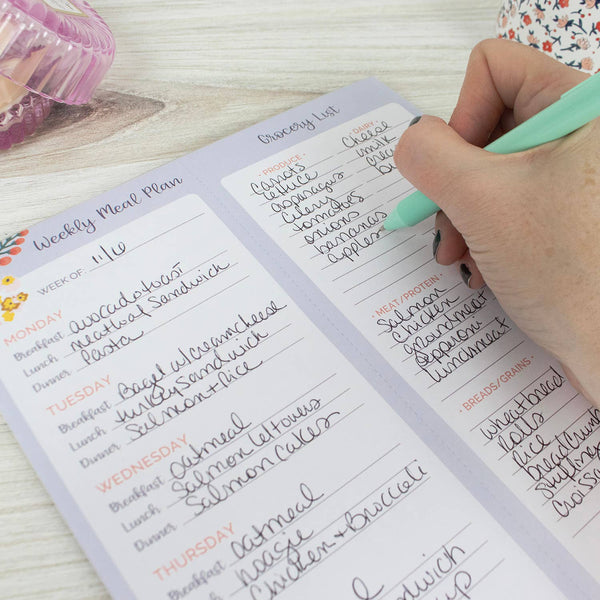 Weekly Meal Plan
WEEK OF: 11/10
MONDAY
Breakfast avocado toast
Lunch meatloaf Sandwich
Dinner Pasta
TUESDAY
Breakfast Bagel w/creamcheese
Lunch turkey Sandwich
Dinner Salmon + Rice
WEDNESDAY
Breakfast oatmeal
Lunch Salmon leftovers
Dinner Salmon Cakes
THURSDAY
Breakfast oatmeal
Lunch hoagie
Dinner Chicken + Broccoli
Grocery List
· PRODUCE ·
Carrots
lettice
asparagus
Celery
tomatoes
onions
bananas
apples
· DAIRY ·
Cheese
milk
· MEAT/PROTEIN ·
Salmon
Chicken
ground meat
Pepperoni
lunchmeat
· BREADS/GRAINS ·
wheat bread
Rolls
Rice
breadcrumb
Stuffing
Croissa